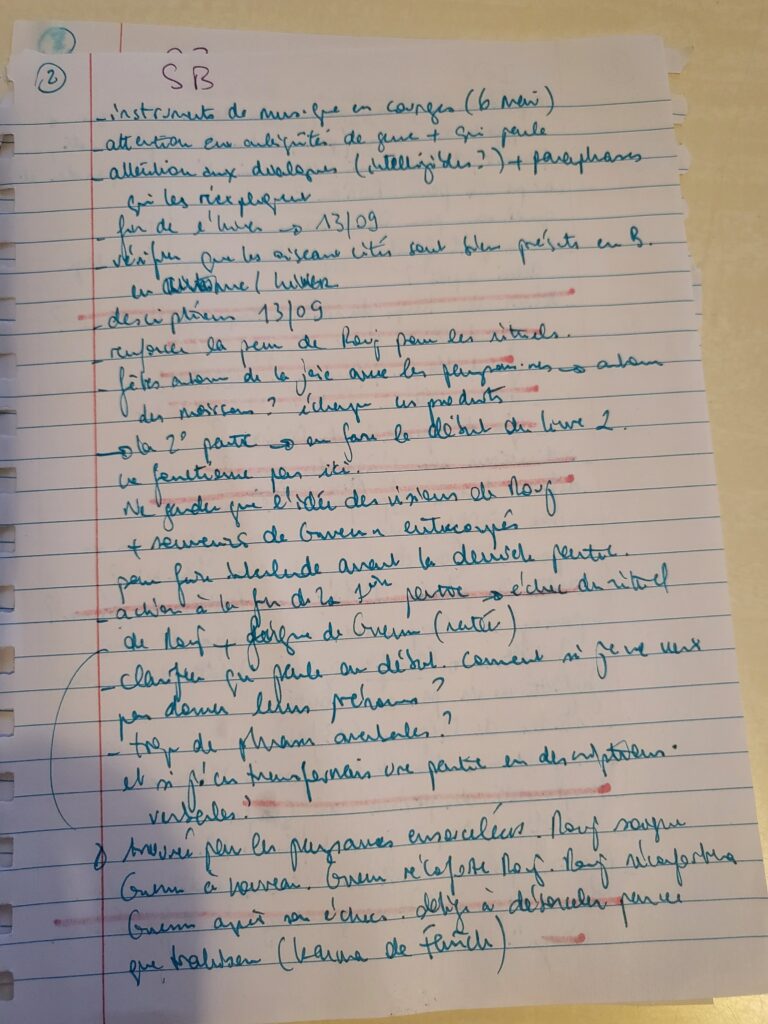 2
SB
- instruments de musique en courges (6 mai)
- attention aux ambiguités de genre + qui parle
- attention aux dialogues (intelligibles?) + paraphrases
qui les réexpliquent
- fin de l'hiver → 13/09
- vérifier que les oiseaux cités sont bien présents en B.
en automne / hiver
- descriptions 13/09
- renforcer la peur de Rouf pour les rituels.
- fêtes autour de la joie avec les paysan·nes → autour
des moissons? échange en produits
→ la 2° partie → en faire le début du livre 2.
ne fonctionne pas ici.
Ne garder que l'idée des visions de Rouf
+ souvenirs de entrecoupés
pour faire interlude avant la dernière partie.
- action à la fin de la 1ère partie → échec du rituel
de Rouf + de (ratée)
- clarifier qui parle au début. Comment si je ne veux
pas donner leurs prénoms?
- trop de phrases averbales?
et si j'en transformais une partie en descriptions
verbales?
par les paysannes ensorcelées. Rouf soigne
à nouveau. réconforte Rouf. Rouf réconfortera
après son échec. obligé à désorceler parce
que trahison (karma de )